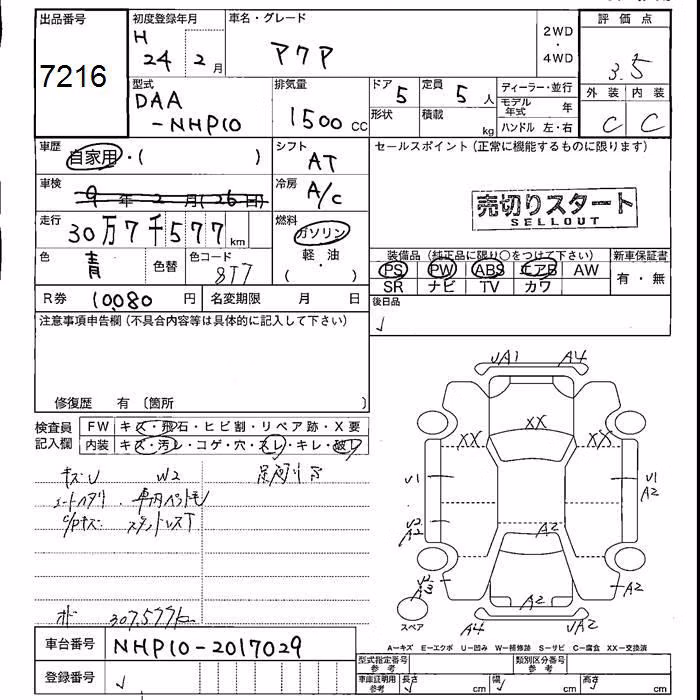 出品番号
7216
初度登録年月
H
24 2 月
車名・グレード
アクア
2WD
・
4WD
評価点
3.5
外装 内装
C C
型式
DAA
-NHP10
排気量
1500 cc
ドア 5
形状
定員 5 人
積載 kg
ディーラー・並行
モデル年式 年
ハンドル 左・右
車歴
自家用・( )
シフト
AT
セールスポイント (正常に機能するものに限ります)
売切りスタート
SELLOUT
車検
9 年 2 月(26日)
冷房
A/C
走行
30万7千577km
燃料
ガソリン
軽・油
( )
色
青
色替
色コード
8T7
装備品 (純正品に限り○をつけて下さい)
新車保証書
PS PW ABS エアB AW
SR ナビ TV カワ
有・無
R券 10080 円
名変期限 月 日
後日品
注意事項申告欄 (不具合内容等は具体的に記入して下さい)
修復歴 有 〔箇所 〕
検査員
記入欄
FW キズ・飛石・ヒビ割・リペア跡・X要
内装 キズ・汚レ・コゲ・穴・スレ・キレ・破レ
キズU W2
307577km
UA1 A4
XX
XX XX
U1 U1
A2
U2 A2
A2
U2
A2 A2
A2
スペア A4 UA2
A−キズ E−エクボ U−凹み W−補修跡 S−サビ C−腐食 XX−交換済
車台番号 NHP10-2017029
登録番号
型式指定番号
参考
類別区分番号
参考
車庫証明用
参考
長さ cm 幅 cm 高さ cm